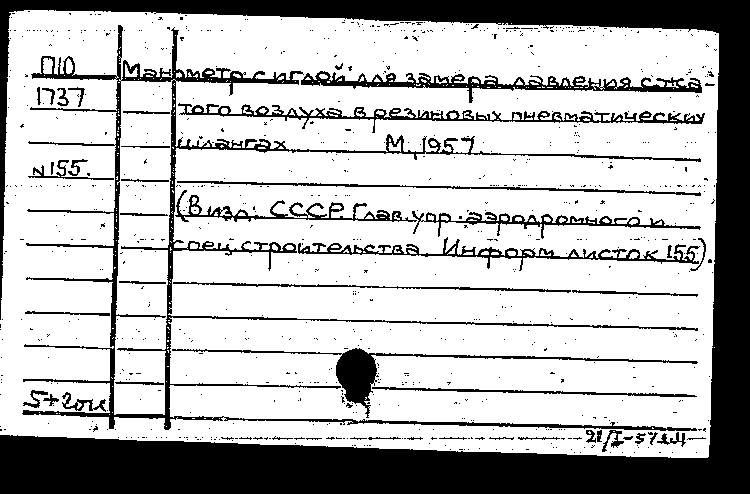 П10
1737
N155.
Манометр с иглой для замера давления сжа-
того воздуха в резиновых пневматических
шлангах. М., 1957.
(В изд: СССР. Глав. упр. аэродромного и
спец. строительства. Информ листок 155).
21/I-57